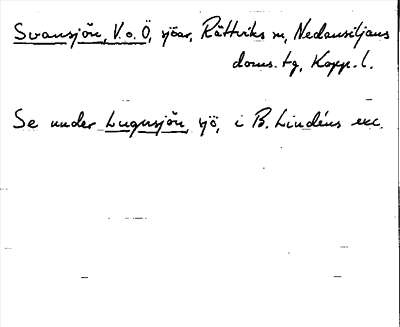 Svansjön, V. o. Ö, sjöar, Rättviks sn, Nedansiljans
doms. tg, Kopp. l.
Se under Lugnsjön, sjö, i B. Lindéns exc.